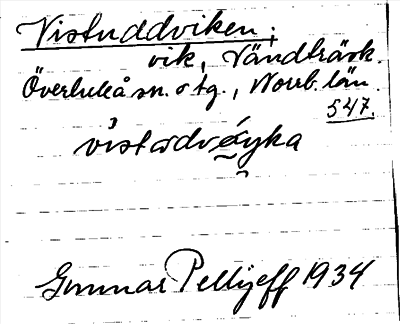 Vistuddviken;
vik, Vändträsk.
Överluleå sn. o tg., Norrb. län.
547.
Gunnar Pellijeff 1934